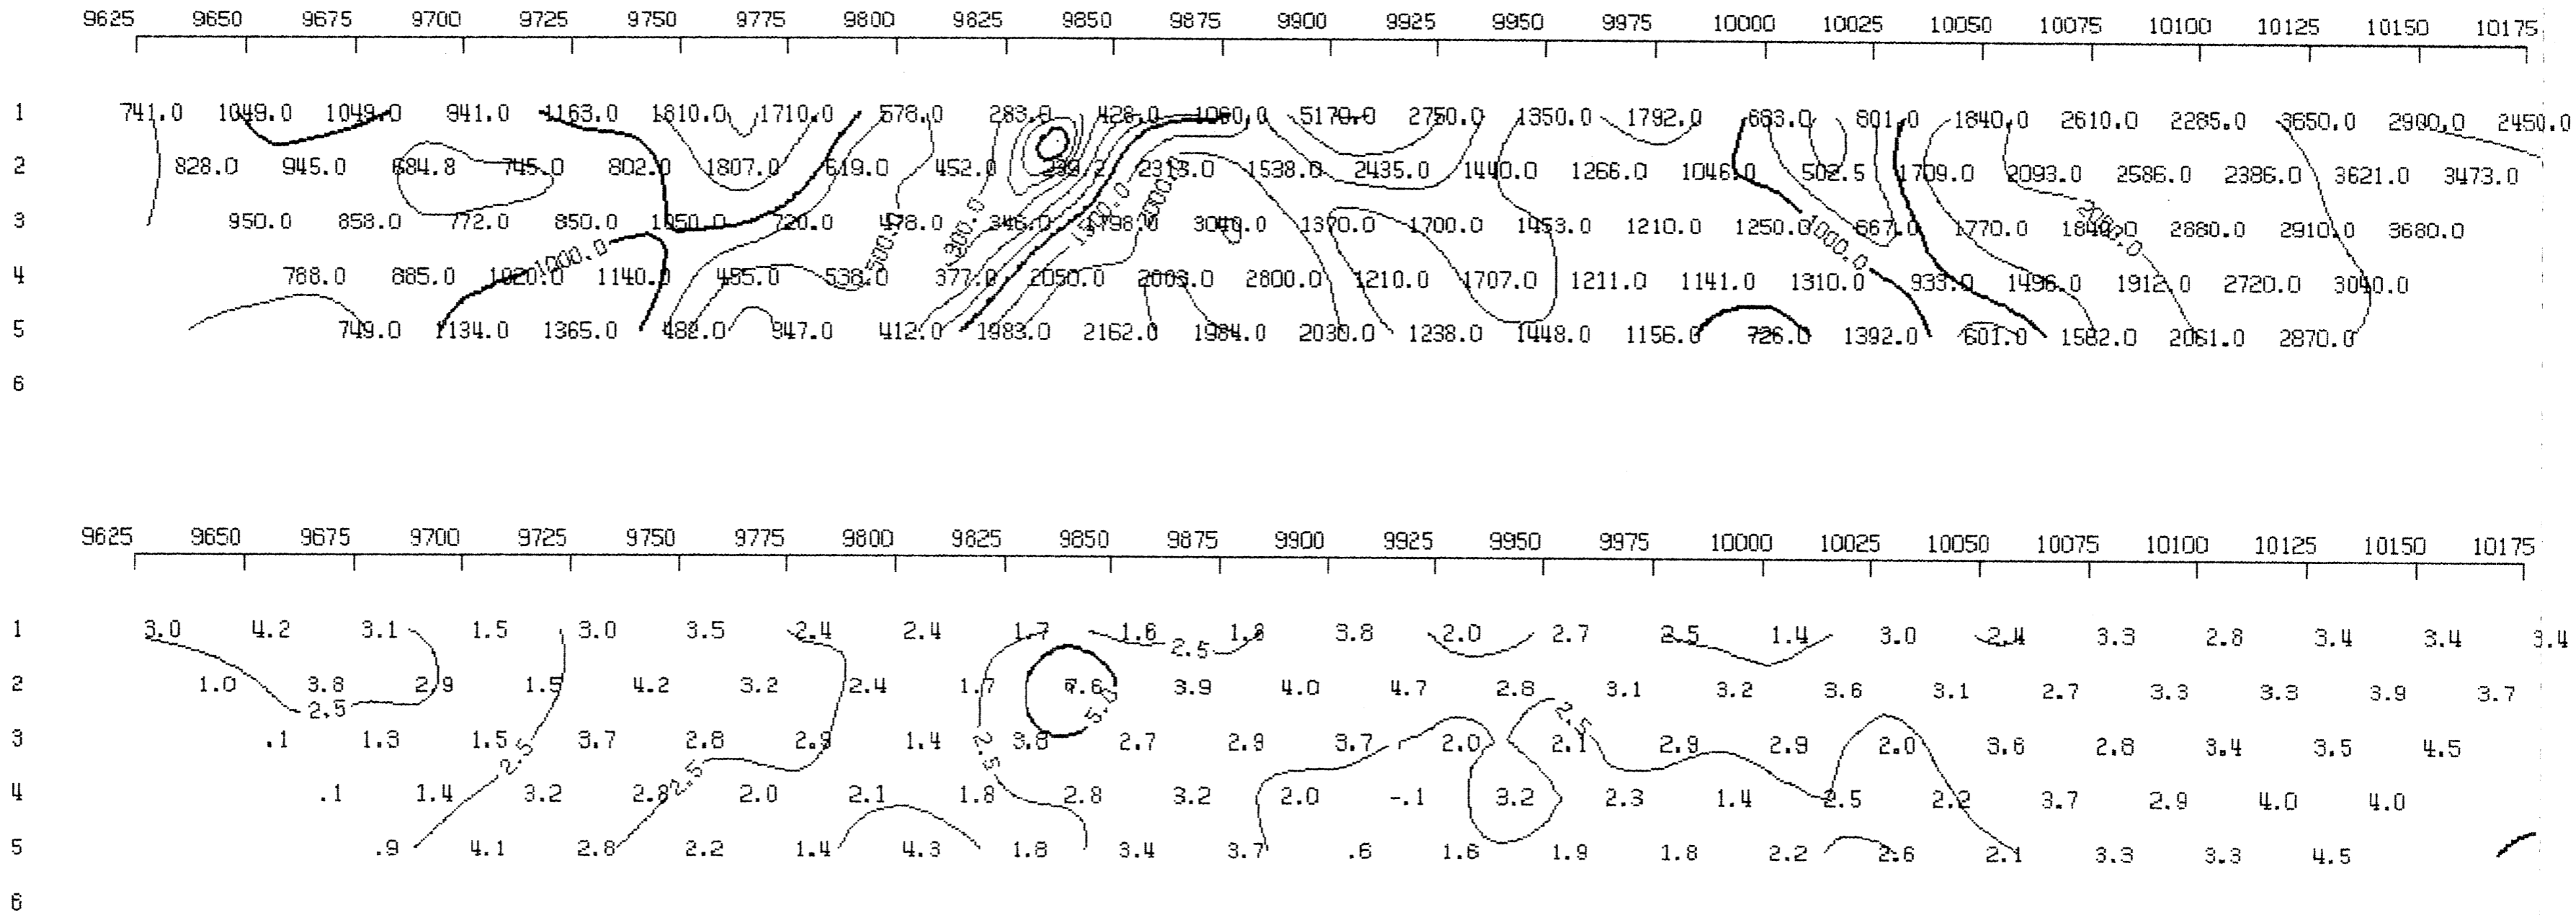 9625 9650 9675 9700 9725 9750 9775 9800 9825 9850 9875 9900 9925 9950 9975 10000 10025 10050 10075 10100 10125 10150 10175
1 741.0 1049.0 1049.0 941.0 1163.0 1810.0 1710.0 578.0 283.0 428.0 1060.0 5170.0 2750.0 1350.0 1792.0 683.0 601.0 1840.0 2610.0 2285.0 3650.0 2980.0 2450.0
2 828.0 945.0 684.8 745.0 802.0 1807.0 619.0 452.0 2313.0 1538.0 2435.0 1440.0 1266.0 1046.0 502.5 1709.0 2093.0 2586.0 2386.0 3621.0 3473.0
3 950.0 858.0 772.0 850.0 1050.0 720.0 478.0 346.0 1798.0 3040.0 1370.0 1700.0 1453.0 1210.0 1250.0 667.0 1770.0 1840.0 2880.0 2910.0 3680.0
1000.0 500.0 300.0 1500.0 2000.0 1000.0 2000.0
4 788.0 885.0 1020.0 1140.0 455.0 538.0 377.0 2050.0 2003.0 2800.0 1210.0 1707.0 1211.0 1141.0 1310.0 933.0 1496.0 1912.0 2720.0 3040.0
5 749.0 1134.0 1365.0 482.0 947.0 412.0 1983.0 2162.0 1984.0 2030.0 1238.0 1448.0 1156.0 726.0 1392.0 601.0 1582.0 2061.0 2870.0
6
9625 9650 9675 9700 9725 9750 9775 9800 9825 9850 9875 9900 9925 9950 9975 10000 10025 10050 10075 10100 10125 10150 10175
1 3.0 4.2 3.1 1.5 3.0 3.5 2.4 2.4 1.7 1.6 1.8 3.8 2.0 2.7 2.5 1.4 3.0 2.4 3.3 2.8 3.4 3.4 3.4
2.5
2 1.0 3.8 2.9 1.5 4.2 3.2 2.4 1.7 7.6 3.9 4.0 4.7 2.8 3.1 3.2 3.6 3.1 2.7 3.3 3.3 3.9 3.7
2.5 5.0 2.5
3 .1 1.3 1.5 3.7 2.8 2.9 1.4 3.8 2.7 2.9 3.7 2.0 2.1 2.9 2.9 2.0 3.6 2.8 3.4 3.5 4.5
2.5 2.5 2.5
4 .1 1.4 3.2 2.8 2.0 2.1 1.8 2.8 3.2 2.0 -.1 3.2 2.3 1.4 2.5 2.2 3.7 2.9 4.0 4.0
5 .9 4.1 2.8 2.2 1.4 4.3 1.8 3.4 3.7 .6 1.6 1.9 1.8 2.2 2.6 2.1 3.3 3.3 4.5
6